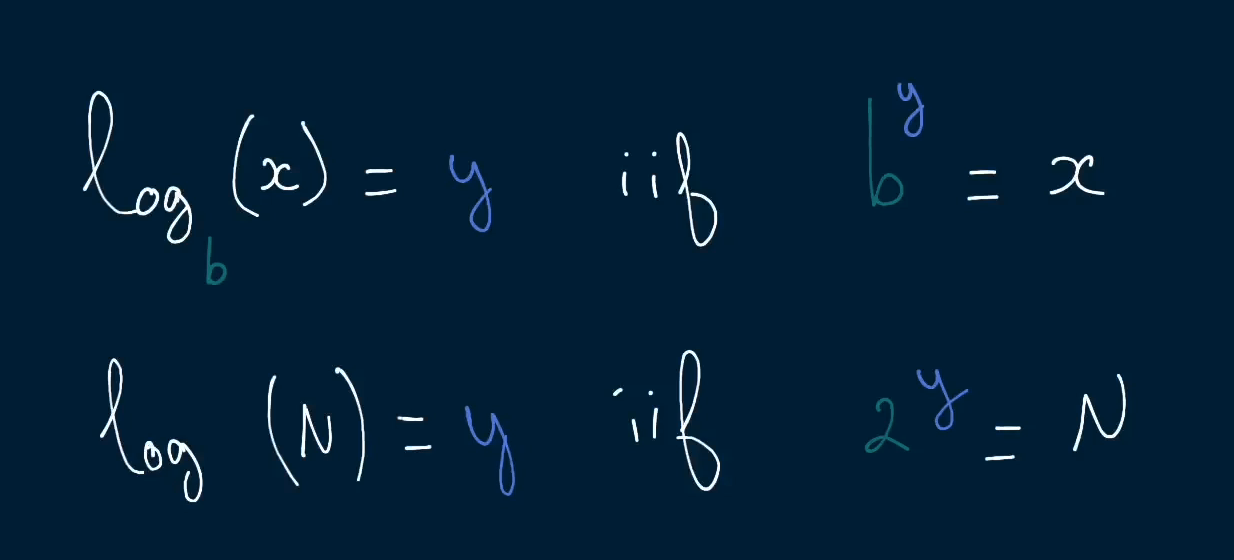 log_b (x) = y iif b^y = x
log (N) = y iif 2^y = N